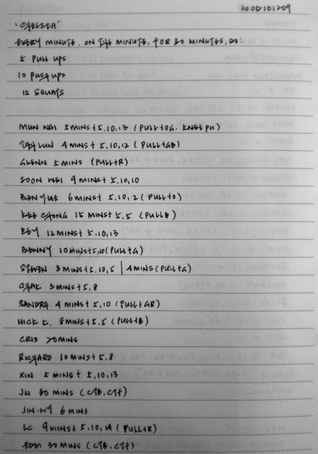 WOD101209
"CHELSEA"
EVERY MINUTE, ON THE MINUTE, FOR 30 MINUTES, DO:
5 PULL UPS
10 PUSH UPS
15 SQUATS
MUN WEI 5 MINS + 5,10,13 (PULL+OG, KNEE PU)
4 MINS + 5,10,12 (PULL+GB)
GLENN 5 MINS (PULL+R)
SOON WEI 9 MINS + 5,10,10
6 MINS + 5,10,2 (PULL+O)
KEE CHONG 15 MINS + 5,5 (PULL+B)
BEY 12 MINS + 5,10,13
BENNY 10 MINS + 5,10 (PULL+G)
STEVEN 3 MINS + 5,10,5 | 4 MINS (PULL+G)
3 MINS + 5,8
SANDRA 4 MINS + 5,10 (PULL+GR)
NICK K. 8 MINS + 5,5 (PULL+B)
CRIS 20 MINS
RICHARD 10 MINS + 5,8
XIN 5 MINS + 5,10,13
JN 30 MINS (CTB, CTF)
JIN-NY 6 MINS
LC 9 MINS + 5,10,14 (PULL+R)
EDM 30 MINS (CTB, CTF)